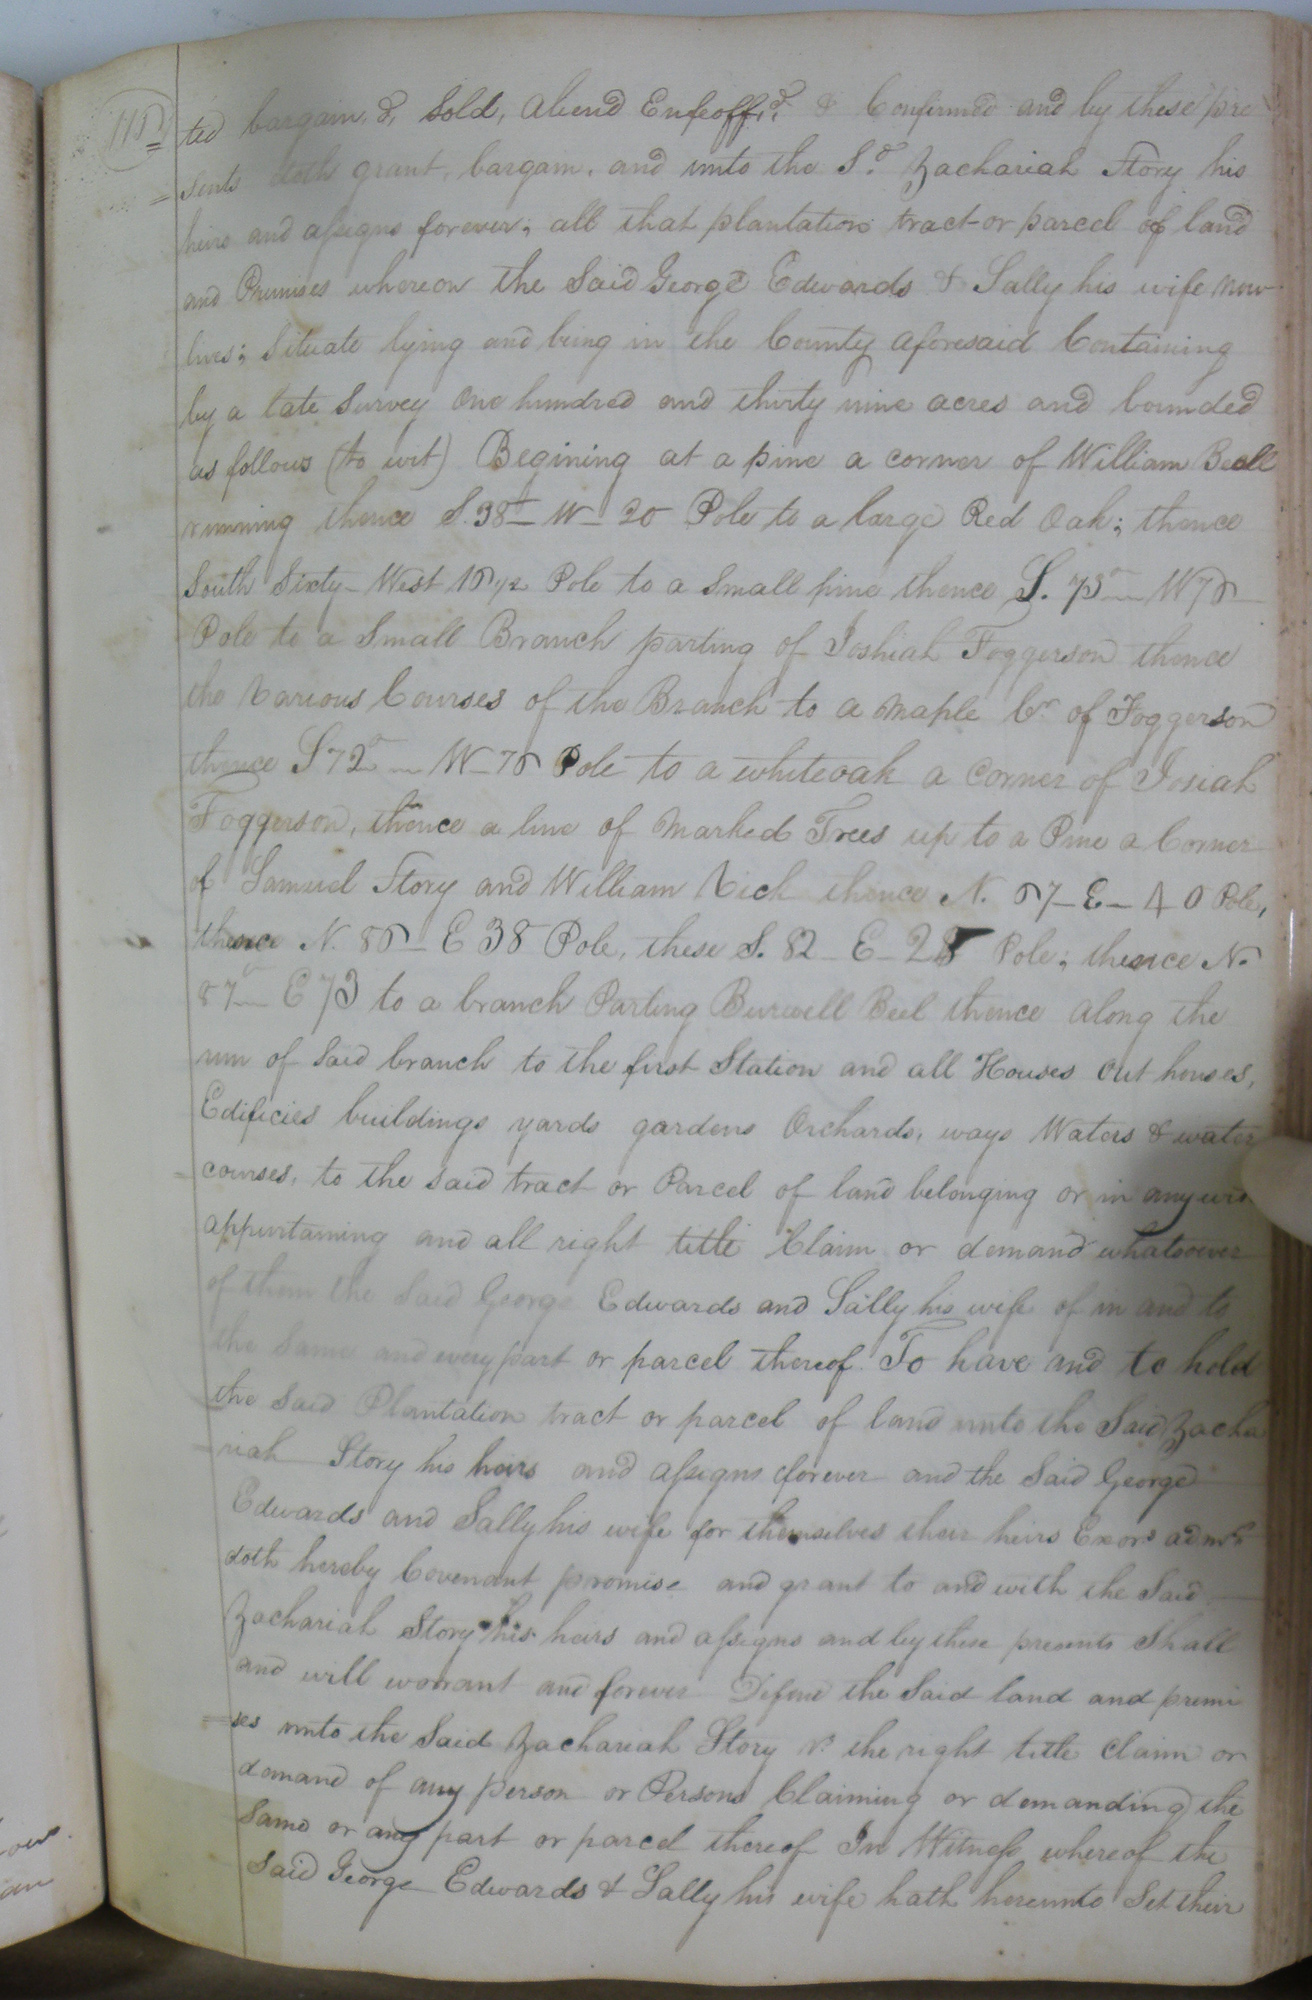 115
ted bargain,d, Sold, aliend Enfeoff,d. & Confirmed and by these pre
sents doth grant, bargain, and unto the Sd. Zachariah Story his
heirs and assigns forever; all that plantation tract or parcel of land
and Premises whereon the Said George Edwards & Sally his wife now
lives; Situate lying and being in the County aforesaid Containing
by a late Survey One hundred and thirty nine acres and bounded
as follows (to wit) Begining at a pine a corner of William Beall
running thence S. 38° W 20 Pole to a large Red Oak; thence
South Sixty West 15 1/2 Pole to a Small pine thence S. 73° W 75
Pole to a Small Branch parting of Joshiah Foggerson thence
the Various Courses of the Branch to a maple Cr. of Foggerson
thence S 72° W 75 Pole to a whiteoak a corner of Josiah
Foggerson, thence a line of Marked Trees up to a Pine a Corner
of Samuel Story and William Vick thence N. 57 E 40 Pole,
thence N. 85 E 38 Pole, these S. 82 E 28 Pole; thence N.
87° E 73 to a branch Parting Burwell Beel thence along the
run of Said branch to the first Station and all Houses Out houses,
Edificies buildings yards gardens Orchards, ways Waters & water
courses, to the said tract or Parcel of land belonging or in any wise
appurtaining and all right title Claim or demand whatsoever
of them the Said George Edwards and Sally his wife of in and to
the Same and every part or parcel thereof. To have and to hold
the Said Plantation tract or parcel of land unto the Said Zacha
riah Story his heirs and assigns forever and the Said George
Edwards and Sally his wife for themselves their heirs Exors admrs
doth hereby Covenant promise and grant to and with the Said
Zachariah Story his heirs and assigns and by these presents Shall
and will warrant and forever Defend the Said land and premi
ses unto the Said Zachariah Story the right title claim or
demand of any person or Persons Claiming or demanding the
Same or any part or parcel thereof In Witness whereof the
Said George Edwards & Sally his wife hath hereunto Set their